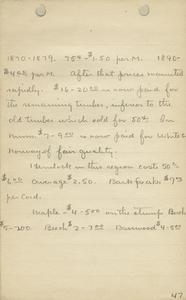 1870-1879. 75¢-$1.50 per M. 1890-
$4.00 per M. After that prices mounted
rapidly. $16-20.00 is now paid for
the remaining timber, inferior to the
old timber which sold for 50¢. In
Minn. $7-9.00 is now paid for White &
Norway of fair quality.
Hemlock in this region costs 50¢-
$6.00 average $2.50. Bark peaks $7.
per Cord.
Maple - $4-5.00 on the stump Birch
$5-7.00. Beech $2-3.00 Basswood $4-5.00
47